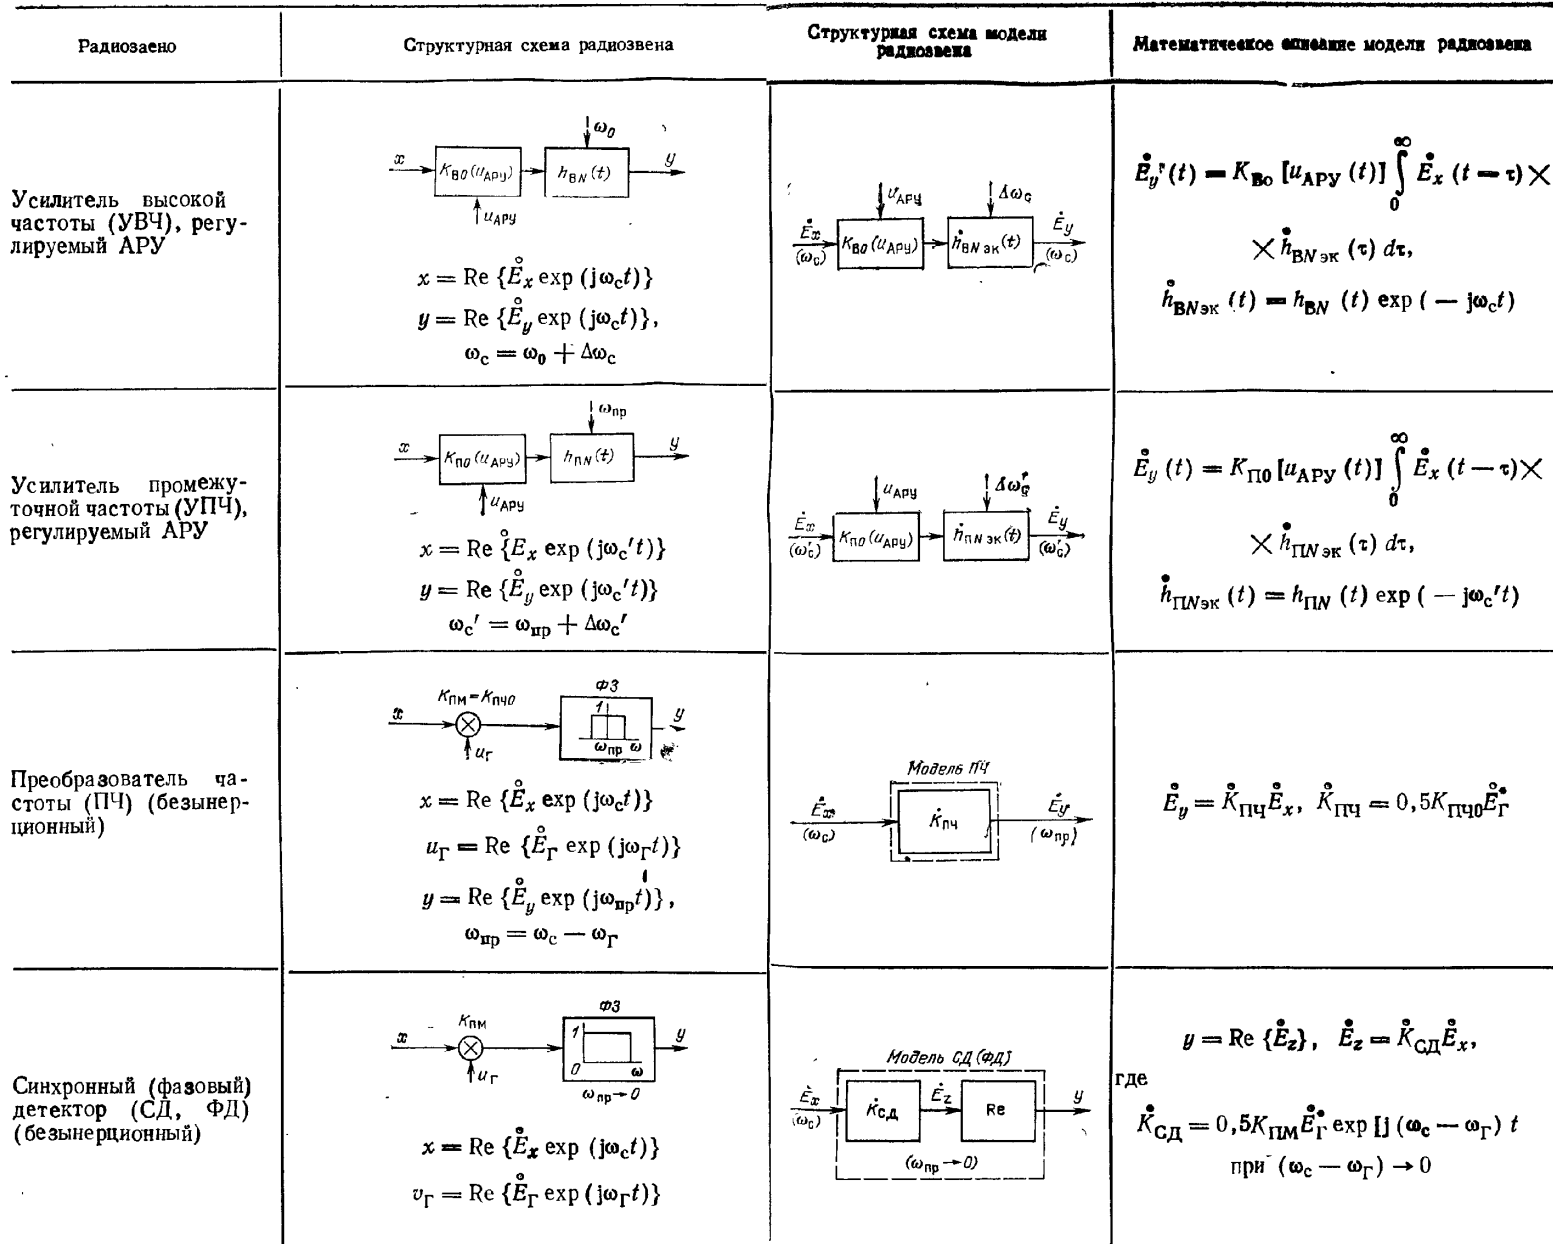 Радиозвено
Структурная схема радиозвена
Структурная схема модели
радиозвена
Математическое описание модели радиозвена
Усилитель высокой
частоты (УВЧ), регу-
лируемый АРУ
ω₀
x
K_В0(u_АРУ)
h_ВN(t)
y
u_АРУ
x = Re {E̊_x exp (jω_c t)}
y = Re {E̊_y exp (jω_c t)},
ω_c = ω₀ + Δω_c
u_АРУ
Δω_c
Ė_x
(ω_c)
K_В0(u_АРУ)
ḣ_ВN эк(t)
Ė_y
(ω_c)
E̊_y (t) = K_Во [u_АРУ (t)] ∫₀^∞ E̊_x (t − τ) ×
× h̊_ВNэк (τ) dτ,
h̊_ВNэк (t) = h_ВN (t) exp (− jω_c t)
Усилитель промежу-
точной частоты (УПЧ),
регулируемый АРУ
ω_пр
x
K_П0(u_АРУ)
h_ПN(t)
y
u_АРУ
x = Re {E̊_x exp (jω_c′t)}
y = Re {E̊_y exp (jω_c′t)}
ω_c′ = ω_пр + Δω_c′
u_АРУ
Δω_c′
Ė_x
(ω_c′)
K_П0(u_АРУ)
ḣ_ПN эк(t)
Ė_y
(ω_c′)
E̊_y (t) = K_П0 [u_АРУ (t)] ∫₀^∞ E̊_x (t − τ) ×
× h̊_ПNэк (τ) dτ,
h̊_ПNэк (t) = h_ПN (t) exp (− jω_c′t)
Преобразователь ча-
стоты (ПЧ) (безынер-
ционный)
K_ПМ = K_ПЧ0
ФЗ
x
1
y
u_Г
ω_пр ω
x = Re {E̊_x exp (jω_c t)}
u_Г = Re {E̊_Г exp (jω_Г t)}
y = Re {E̊_y exp (jω_пр t)},
ω_пр = ω_c − ω_Г
Модель ПЧ
Ė_x
(ω_c)
K̇_ПЧ
Ė_y
(ω_пр)
E̊_y = K̊_ПЧ E̊_x, K̊_ПЧ = 0,5K_ПЧ0 E̊_Г*
Синхронный (фазовый)
детектор (СД, ФД)
(безынерционный)
K_ПМ
ФЗ
x
1
y
u_Г
0 ω
ω_пр → 0
x = Re {E̊_x exp (jω_c t)}
v_Г = Re {E̊_Г exp (jω_Г t)}
Модель СД (ФД)
Ė_x
(ω_c)
K̇_СД
Ė_z
Re
y
(ω_пр → 0)
y = Re {E̊_z}, E̊_z = K̊_СД E̊_x,
где
K̊_СД = 0,5K_ПМ E̊_Г* exp [j (ω_c − ω_Г) t
при (ω_c − ω_Г) → 0